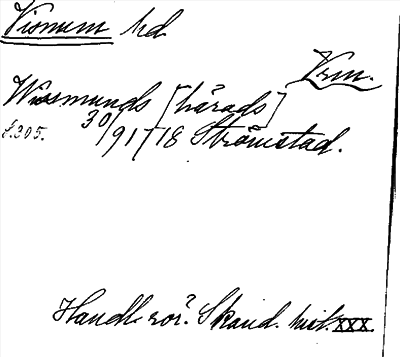 Visnum hd
Vrm.
Wissmunds [härads]
f. 305. 30/9 1718 Strömstad.
Handl. rör. Skand. hist. XXX.